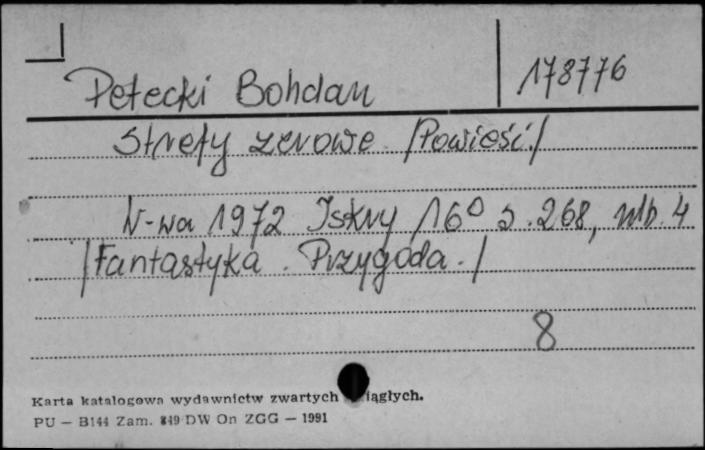 Petecki Bohdan 178776
Strefy zerowe. /Powieść./
W-wa 1972 Iskry 16° s. 268, nlb. 4
/Fantastyka. Przygoda./
8
Karta katalogowa wydawnictw zwartych iągłych.
PU — B144 Zam. 849 DW On ZGG — 1991